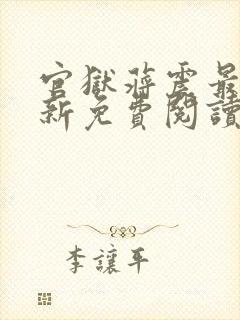 官獄蔣震最
新免費閱讀
李讓平